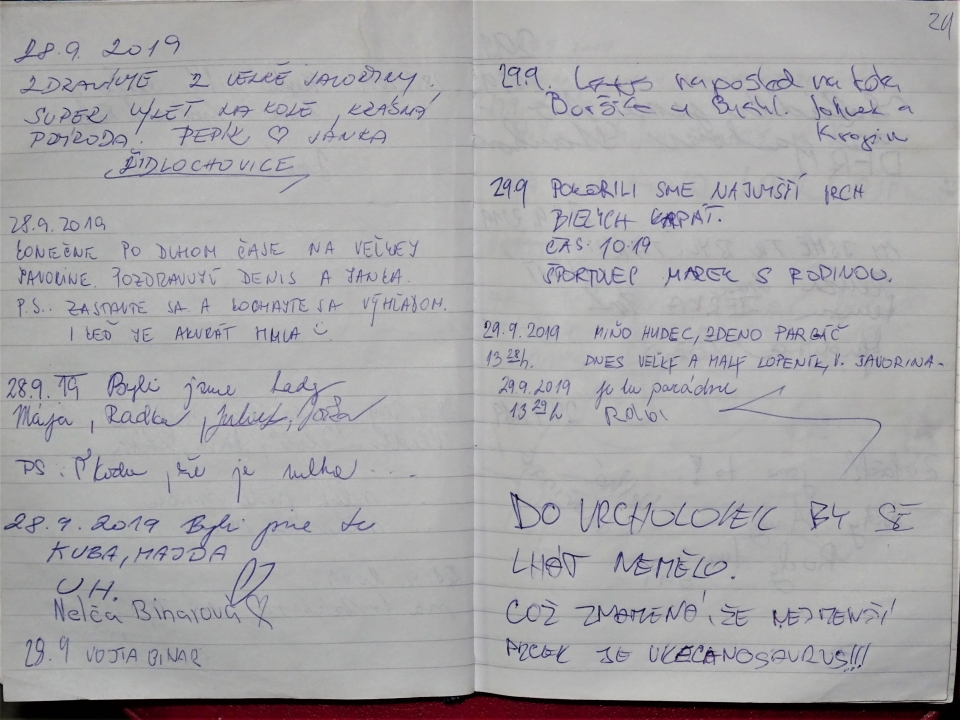 28.9. 2019
ZDRAVÍME Z VELKÉ JAVOŘINY.
SUPER VÝLET NA KOLE, KRÁSNÁ
PŘÍRODA. PEPÍK ♡ JANKA
ŽIDLOCHOVICE
28.9.2019
KONEČNE PO DLHOM ČASE NA VEĽKEJ
JAVORINE. POZDRAVUJÚ DENIS A JANKA.
P.S.. ZASTAVTE SA A KOCHAJTE SA VÝHĽADOM.
I KEĎ JE AKURÁT HMLA
28.9.19 Byli jsme tady
Mája, Radka,
PS. Škoda, že je mlha ....
28.9.2019 Byli jsme tu
KUBA, MAJDA
UH.
Nelča Binarová
28.9 VOJTA BINAR
24
29.9. Letos naposled na kole
Boršice u Bychl. a
29.9 POKORILI SME NAJVYŠŠÍ VRCH
BIELYCH KARPÁT.
ČAS: 10:19
ŠPORTOVEC MAREK S RODINOU.
29.9.2019 MIŇO HUDEC, ZDENO
13 28h. DNES VEĽKÝ A MALÝ LOPENÍK, V. JAVORINA-
29.9.2019 je tu parádne
13 29h Robi
DO VRCHOLOVEK BY SE
LHÁT NEMĚLO.
COŽ ZNAMENÁ, ŽE NEJMENŠÍ
JE UKECANOSAURUS!!!